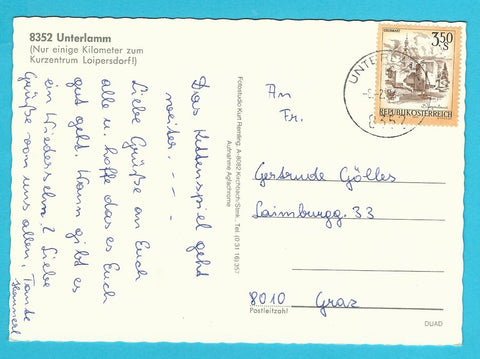 8352 Unterlamm
(Nur einige Kilometer zum
Kurzentrum Loipersdorf!)
Das Kettenspiel geht
weiter. - - -
Liebe Grüße an Euch
alle u. hoffe das es Euch
gut geht. Wann gibt es
ein Wiedersehn? Liebe
Grüße von uns allen, Tante
Fotostudio Kurt Remling, A-8082 Kirchbach/Stmk., Tel. (0 31 16) 357
Aufnahme Aglachnome
3.50
S
REPUBLIK ÖSTERREICH
8352
An
Fr.
Gertrude Gölles
Laimburgg. 33
8010 Graz
Postleitzahl
DUAD